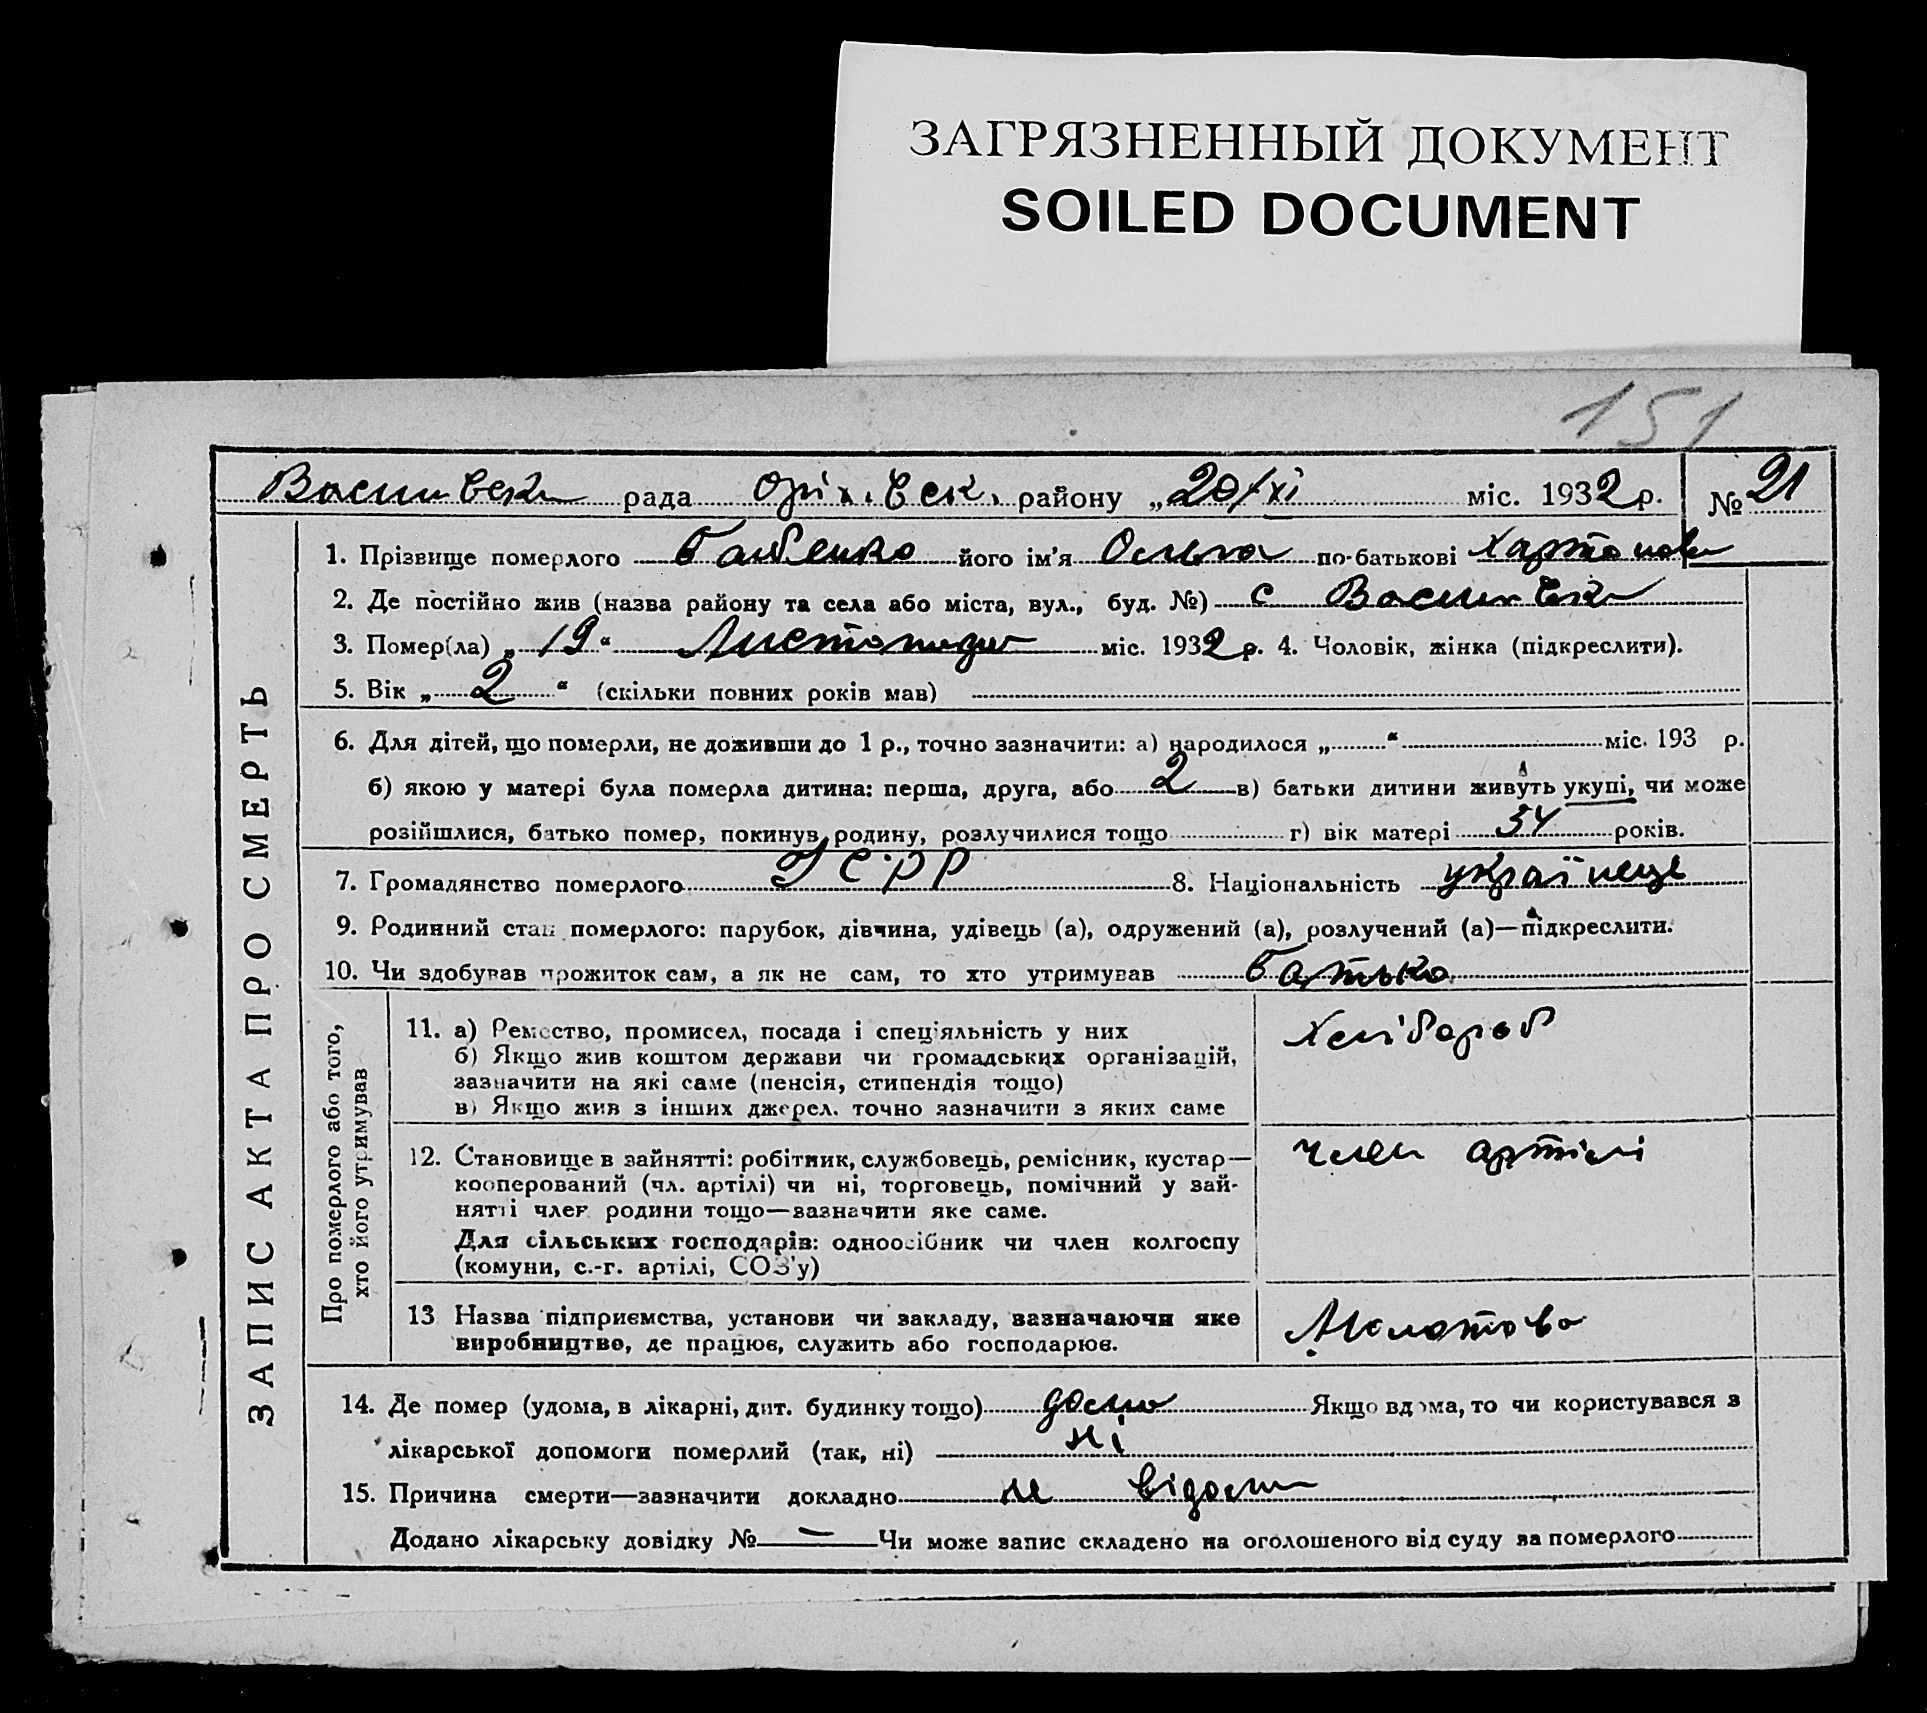 ЗАГРЯЗНЕННЫЙ ДОКУМЕНТ
SOILED DOCUMENT
151
рада Оріхівськ. району „20/XI міс. 1932 р. № 21
ЗАПИС АКТА ПРО СМЕРТЬ
1. Прізвище померлого Бабенко його ім'я Ольга по-батькові
2. Де постійно жив (назва району та села або міста, вул., буд. №) с
3. Помер(ла) „19“ Листопада міс. 1932 р. 4. Чоловік, жінка (підкреслити).
5. Вік „2“ (скільки повних років мав)
6. Для дітей, що померли, не доживши до 1 р., точно зазначити: а) народилося „ “ міс. 193 р.
б) якою у матері була померла дитина: перша, друга, або 2 в) батьки дитини живуть укупі, чи може
розійшлися, батько помер, покинув родину, розлучилися тощо г) вік матері 34 років.
7. Громадянство померлого УСРР 8. Національність
9. Родинний стан померлого: парубок, дівчина, удівець (а), одружений (а), розлучений (а)—підкреслити.
10. Чи здобував прожиток сам, а як не сам, то хто утримував батько
Про померлого або того,
хто його утримував
11. а) Ремество, промисел, посада і спеціяльність у них
б) Якщо жив коштом держави чи громадських організацій,
зазначити на які саме (пенсія, стипендія тощо)
в) Якщо жив з інших джерел, точно зазначити з яких саме
Хлібороб
12. Становище в зайнятті: робітник, службовець, ремісник, кустар—
кооперований (чл. артілі) чи ні, торговець, помічний у зай-
нятті член родини тощо—зазначити яке саме.
Для сільських господарів: одноосібник чи член колгоспу
(комуни, с.-г. артілі, СОЗ'у)
член артілі
13 Назва підприємства, установи чи закладу, зазначаючи яке
виробництво, де працює, служить або господарює.
Молотова
14. Де помер (удома, в лікарні, дит. будинку тощо) дома Якщо вдома, то чи користувався з
лікарської допомоги померлий (так, ні) ні
15. Причина смерти—зазначити докладно не відома
Додано лікарську довідку № — Чи може запис складено на оголошеного від суду за померлого